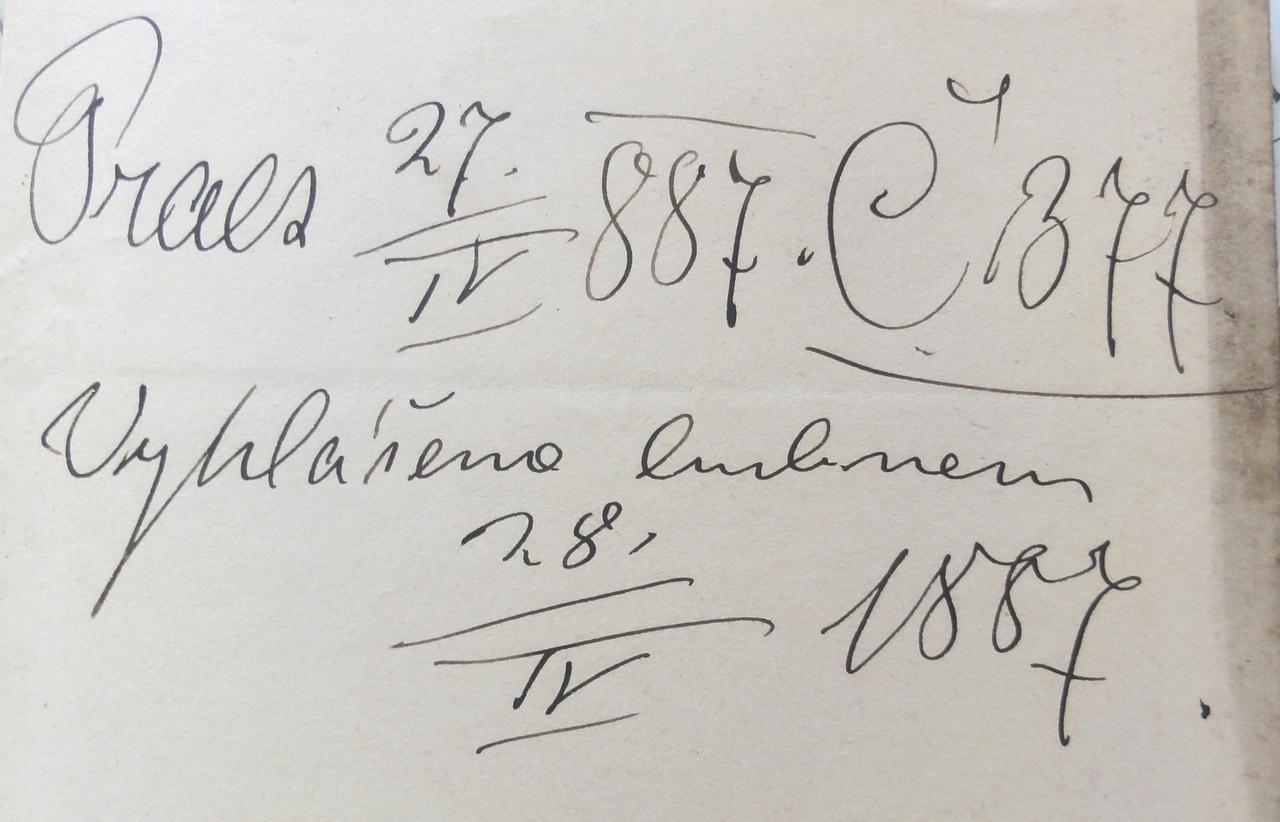 Praes 27./IV 887. Č 1377
Vyhlášeno bubnem
28./IV 1887.